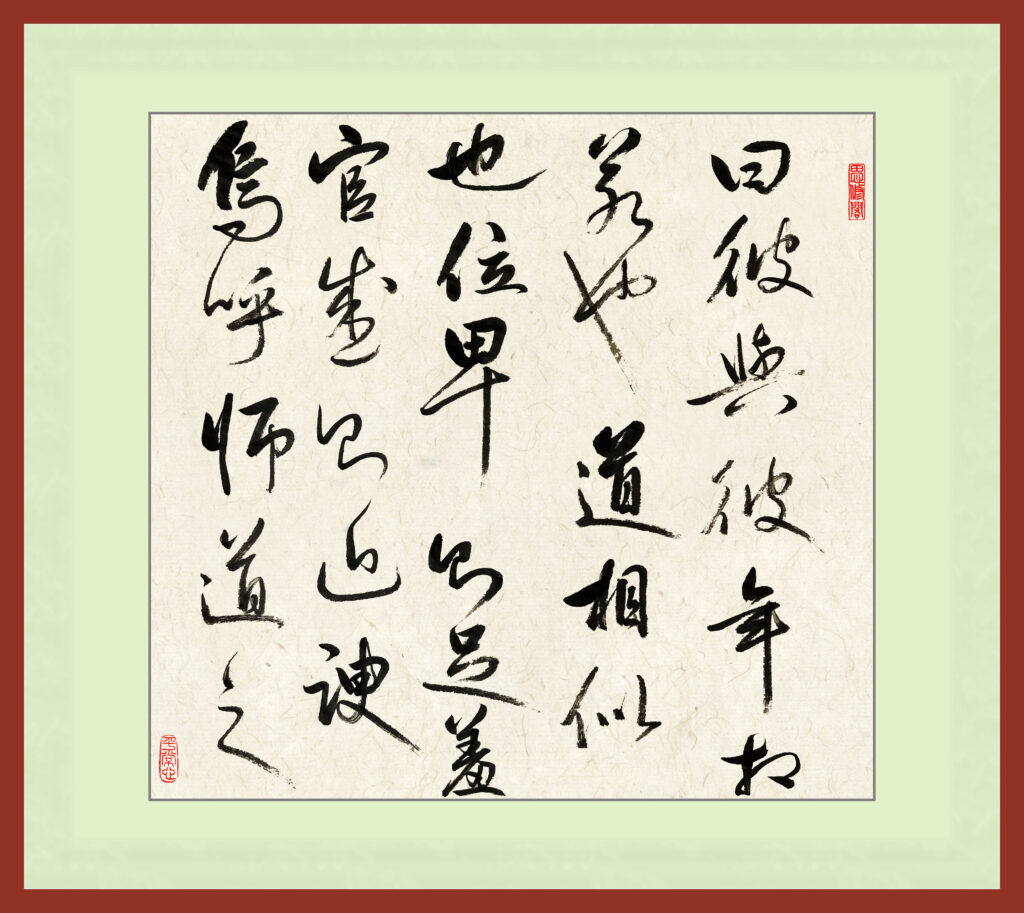 思修閣
曰彼與彼年相
若也道相似
也位卑則足羞
官盛則近諛
嗚呼師道之
平常心